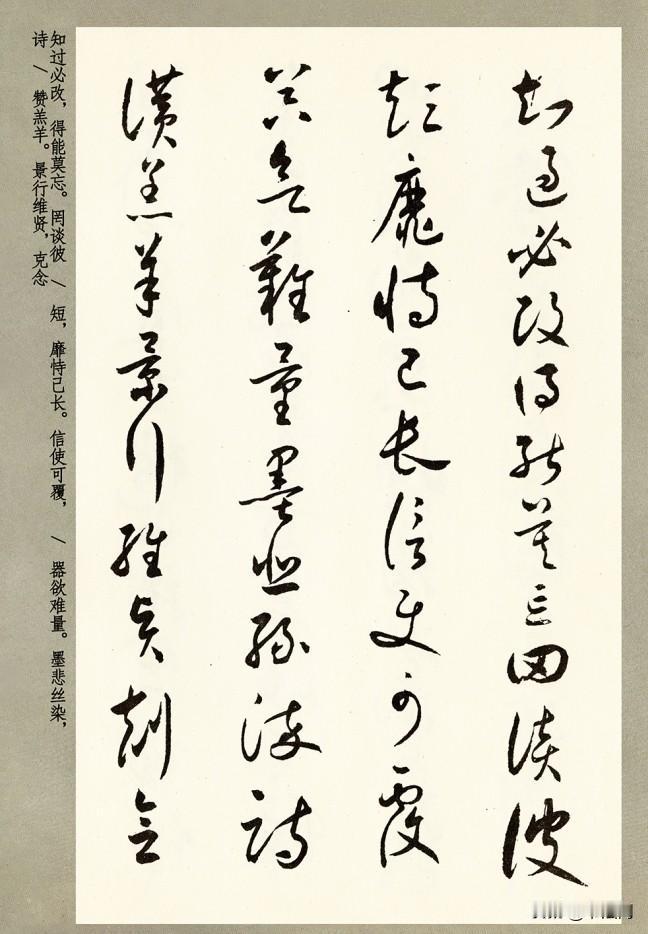 知过必改，得能莫忘。罔谈彼／短，靡恃己长。信使可覆，／器欲难量。墨悲丝染，
诗／赞羔羊。景行维贤，克念
知過必改得能莫忘罔談彼
短靡恃己長信使可覆
器欲難量墨悲絲染詩
讚羔羊景行維賢剋念